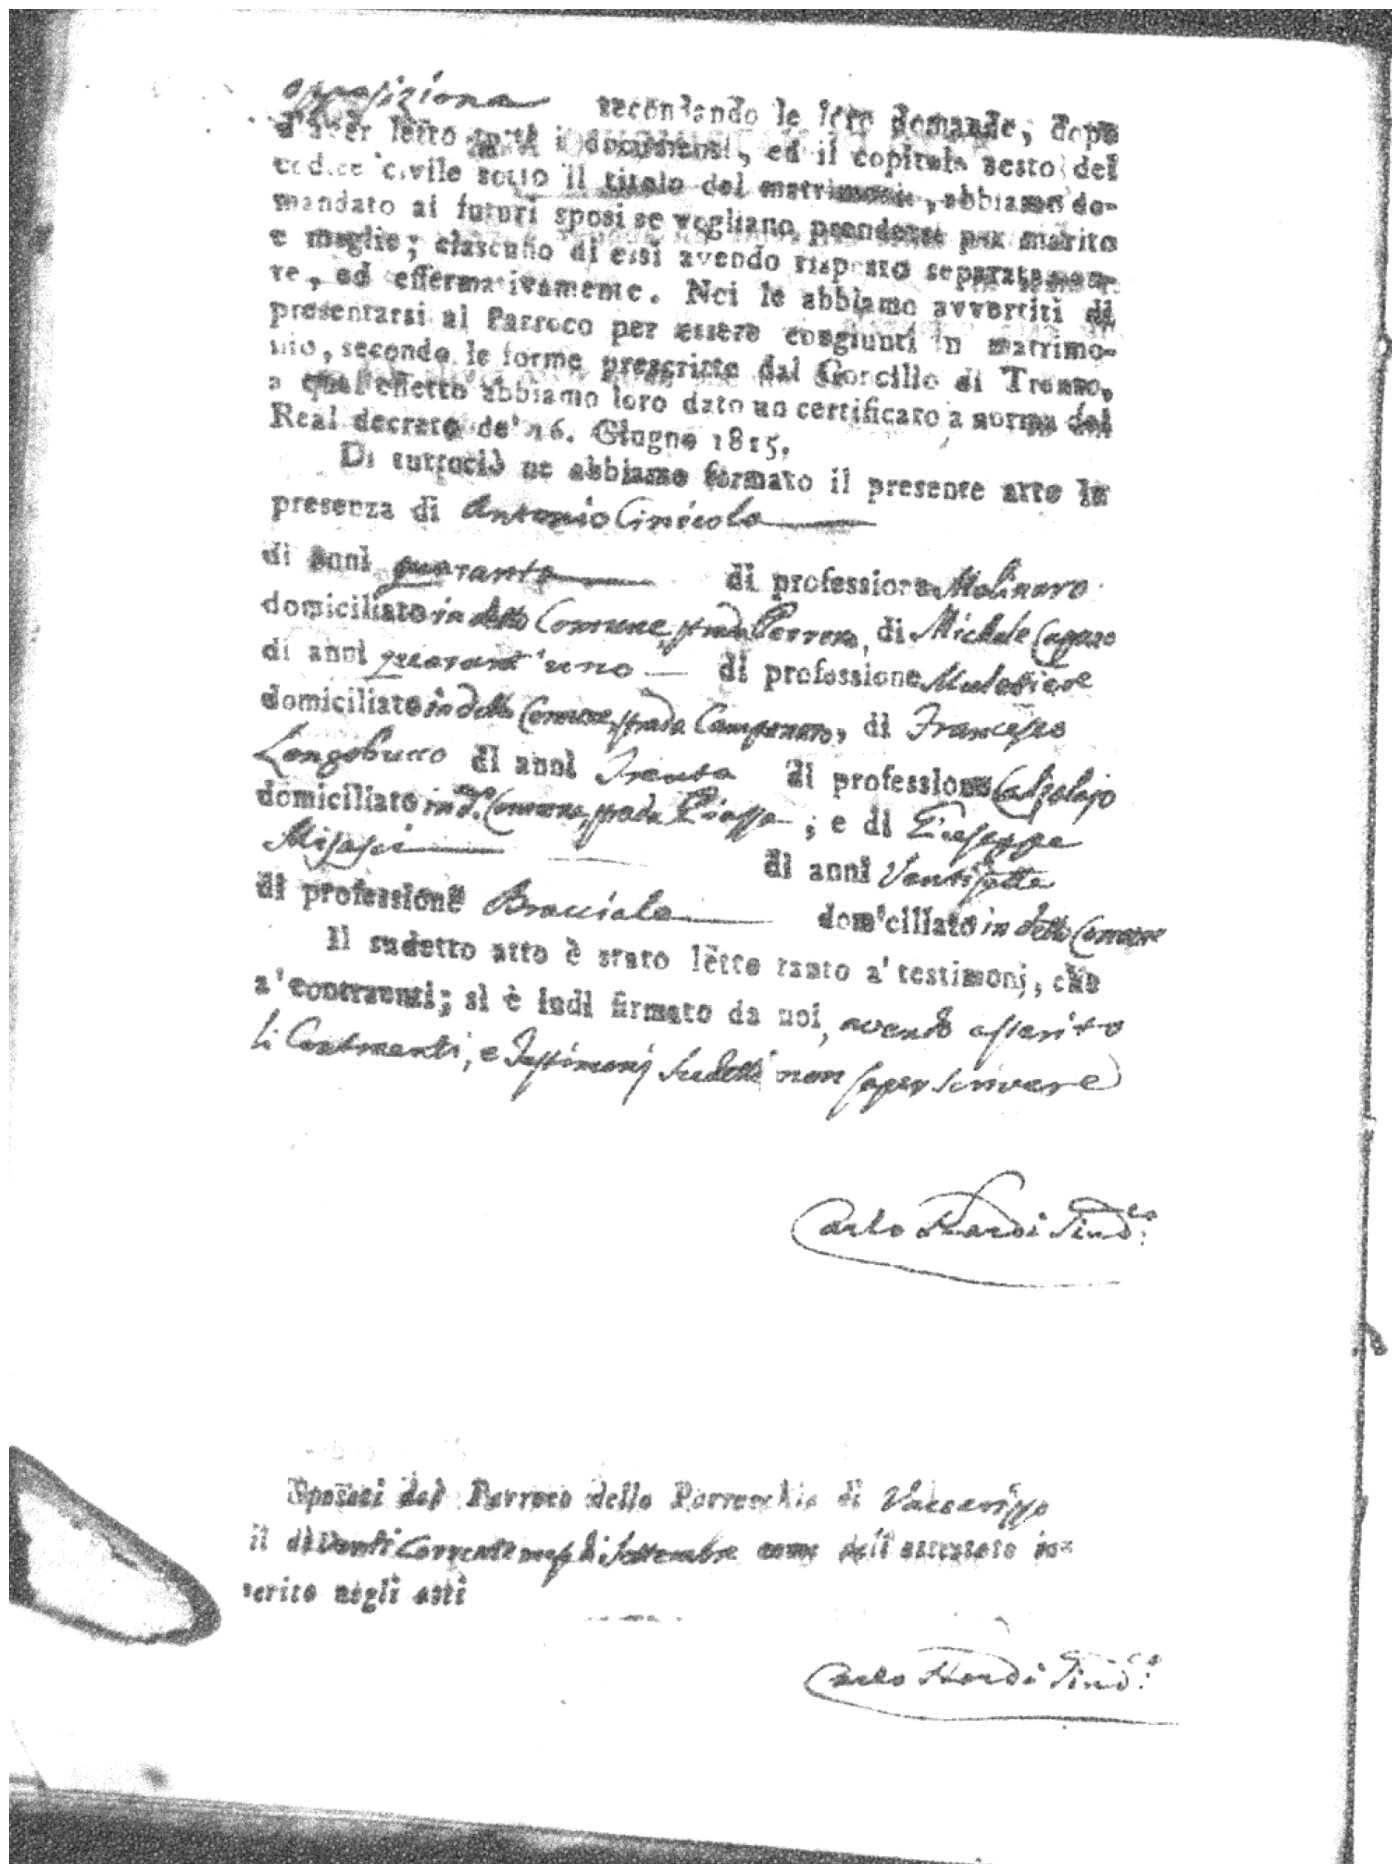 opposizione secondando le loro domande, dopo
d'aver letto tutti i documenti, ed il capitolo sesto del
codice civile sotto il titolo del matrimonio, abbiamo do-
mandato ai futuri sposi se vogliano prendersi per marito
e moglie; ciascuno di essi avendo risposto separatamen-
te, ed affermativamente. Noi le abbiamo avvertiti di
presentarsi al Parroco per essere congiunti in matrimo-
nio, secondo le forme prescritte dal Concilio di Trento,
a qual effetto abbiamo loro dato un certificato a norma del
Real decreto de' 16. Giugno 1815.
Di tuttociò ne abbiamo formato il presente atto in
presenza di Antonio
di anni quaranta di professione Molinaro
domiciliato in detto Comune, strada , di Michele
di anni quarant'uno di professione Mulattiere
domiciliato in detto Comune, strada , di Francesco
Longobucco di anni Trenta di professione Calzolajo
domiciliato in d.o Comune, strada Piazza ; e di Giuseppe
Misasi di anni Ventisette
di professione Bracciale domiciliato in detto Comune
Il sudetto atto è stato letto tanto a' testimonj, che
a' contraenti; si è indi firmato da noi, avendo asserito
li Contraenti, e Testimonj sudetti non saper scrivere
Carlo Sind.co
Sposati dal Parroco della Parrocchia di Vaccarizzo
il dì Venti Corrente mese di Settembre come dall'attestato in-
serito negli atti
Carlo Sind.co